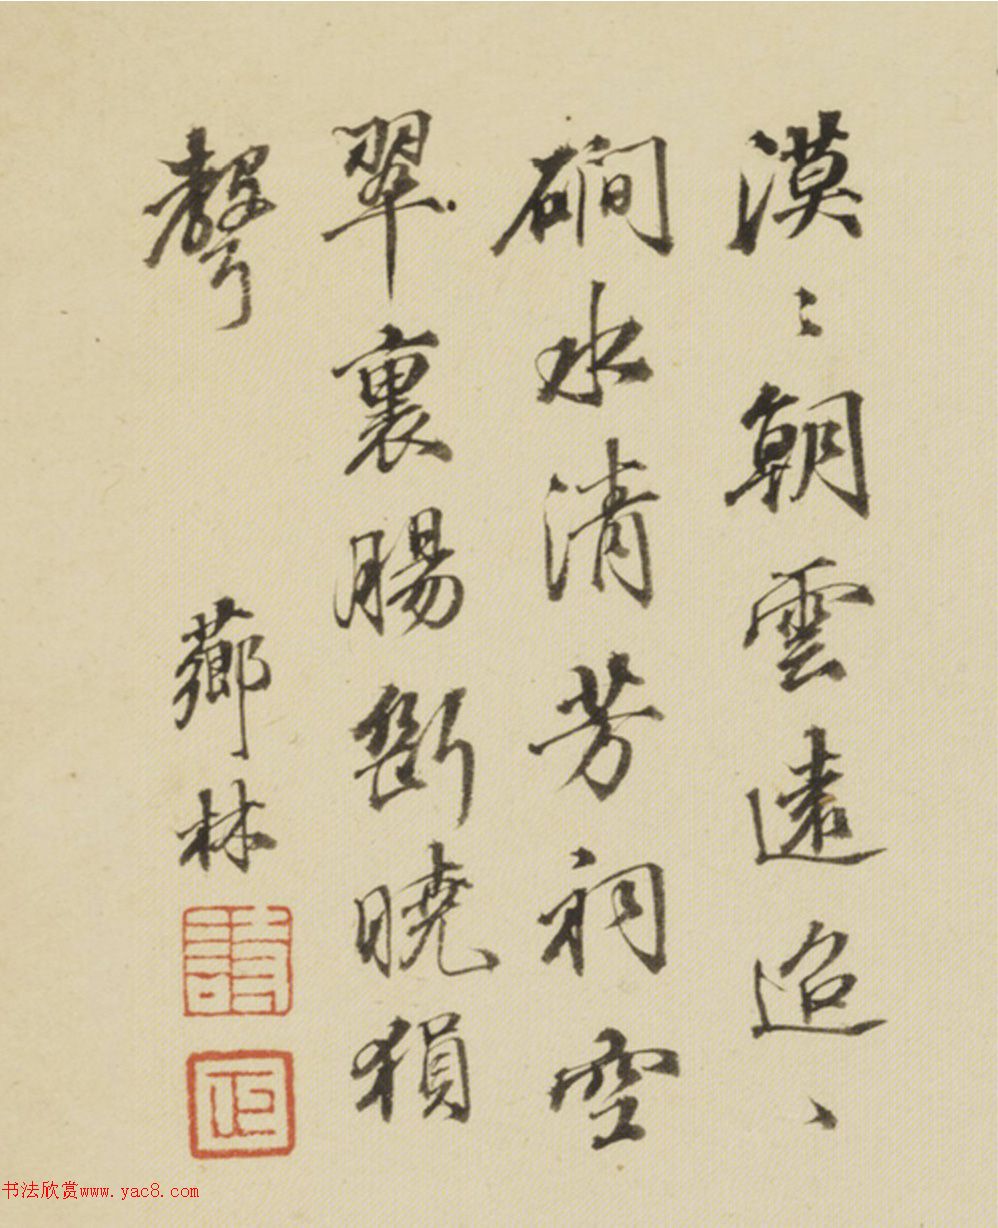 漠〻朝雲遠迢〻
磵水清芳祠空
翠裏腸斷曉猨
聲
薌林
詩
正
书法欣赏www.yac8.com